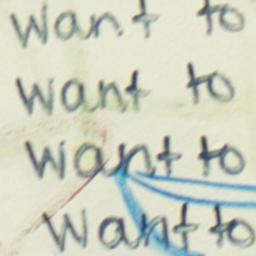 want to
want to
want to
want to